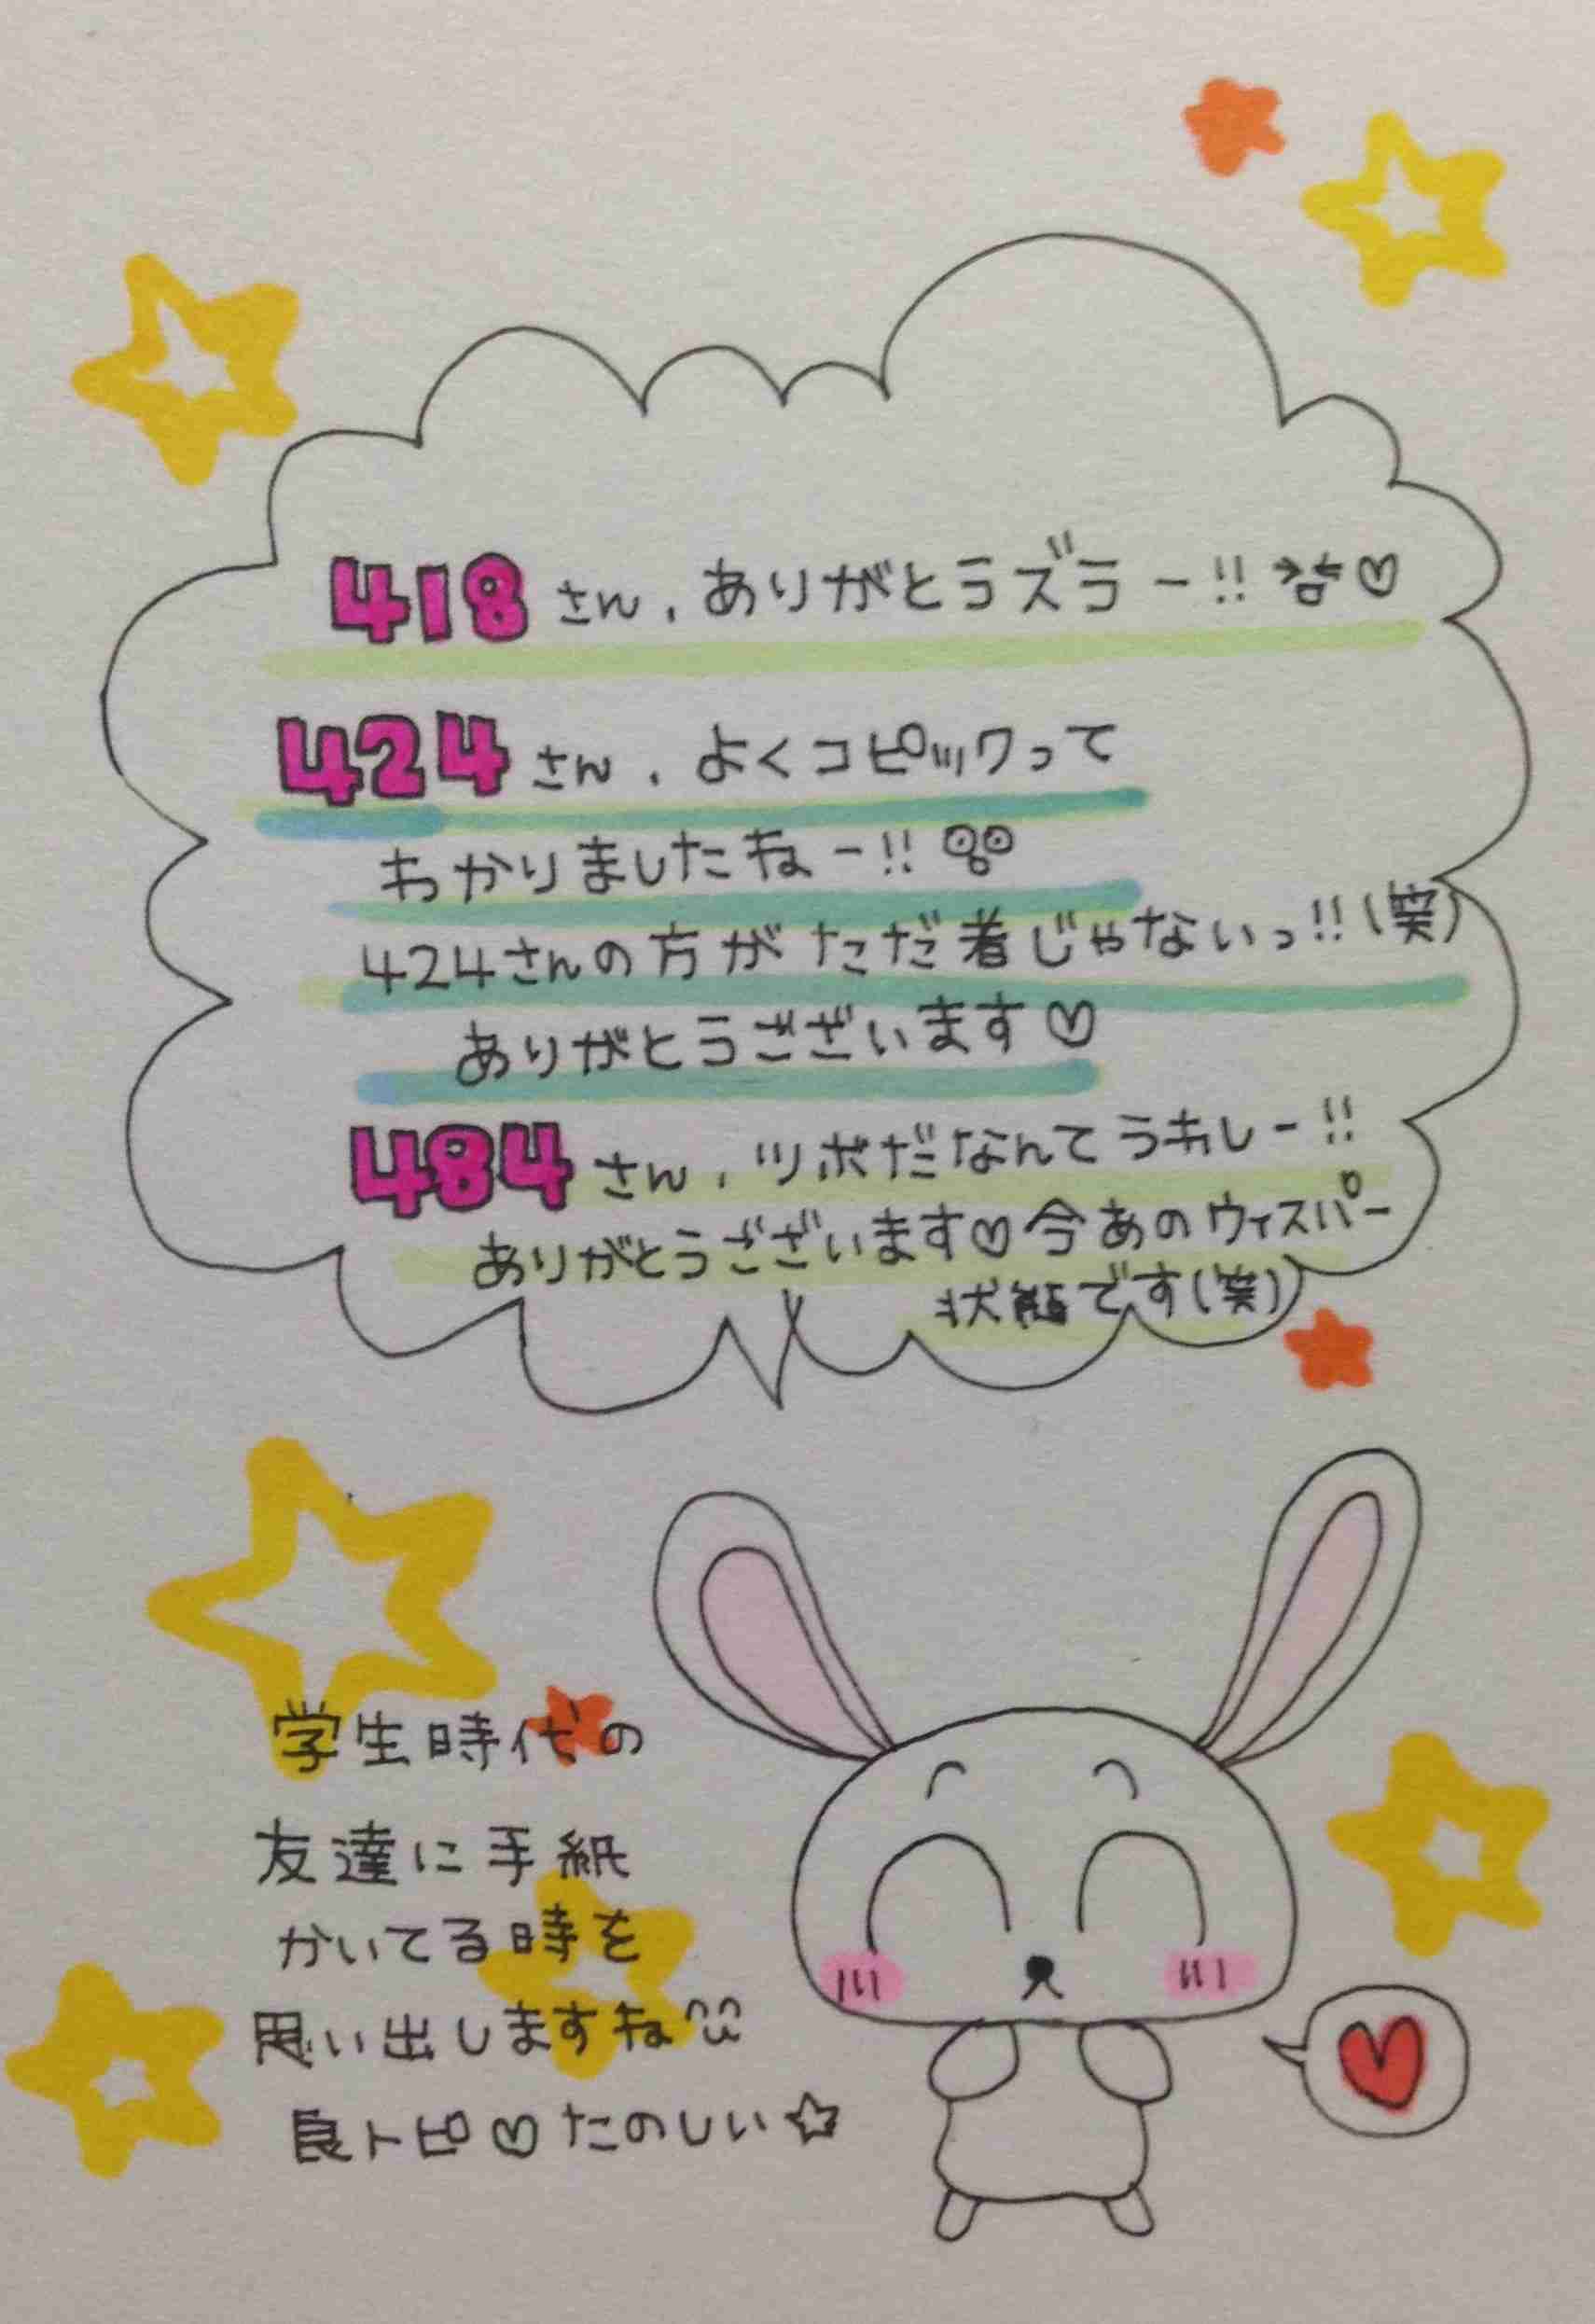 418さん、ありがとうズラー!!♡
424さん、よくコピックって
わかりましたねー!!
424さんの方がただ着じゃないっ!!(笑)
ありがとうございます♡
484さん、ツボだなんてうれしー!!
ありがとうございます♡今あのウィスパー
状態です(笑)
学生時代の
友達に手紙
かいてる時を
思い出しますね
良トピ♡たのしい☆